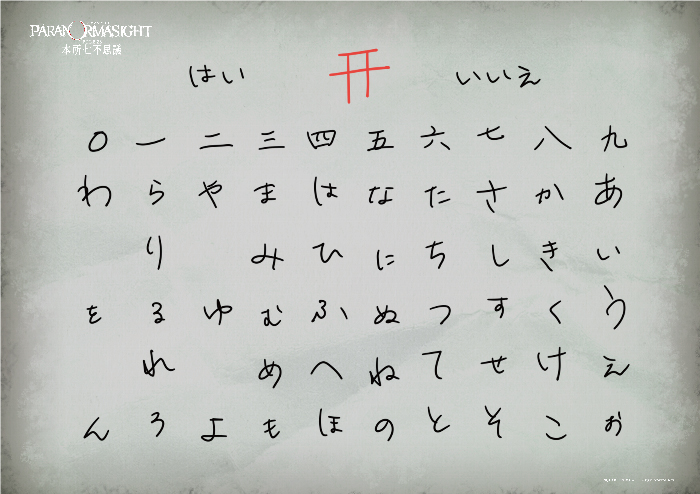 PARANORMASIGHT
本所七不思議
はい いいえ
0 一 二 三 四 五 六 七 八 九
わ ら や ま は な た さ か あ
り み ひ に ち し き い
を る ゆ む ふ ぬ つ す く う
れ め へ ね て せ け え
ん ろ よ も ほ の と そ こ お